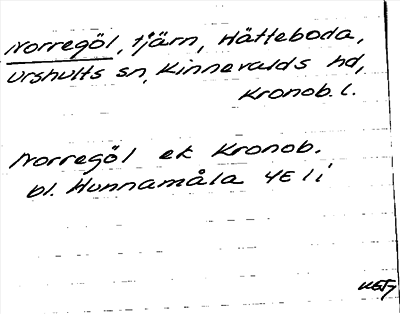 Norregöl, tjärn, Hätteboda,
Urshults sn, Kinnevalds hd,
Kronob. l.
Norregöl ek Kronob.
bl. Hunnamåla 4E 1i